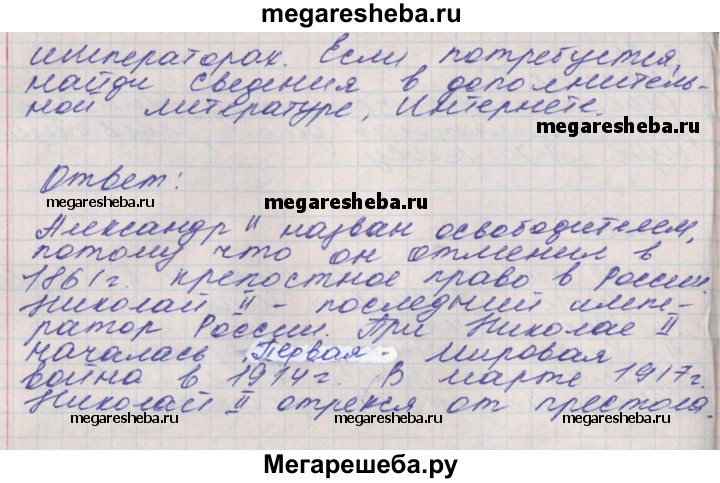 megaresheba.ru
императорах. Если потребуется,
найди сведения в дополнитель-
ной литературе, Интернете.
megaresheba.ru
Ответ:
megaresheba.ru
megaresheba.ru
megaresheba.ru
Александр II назван освободителем,
потому что он отменил в
1861г. крепостное право в России.
Николай II - последний импе-
ратор России. При Николае II
началась Первая - мировая
война в 1914г. В марте 1917г.
Николай II отрекся от престола.
megaresheba.ru
megaresheba.ru
Мегарешеба.ру